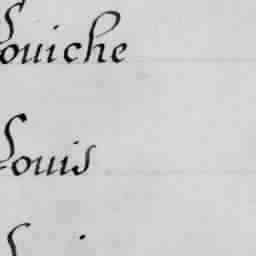 Louiche
Louis